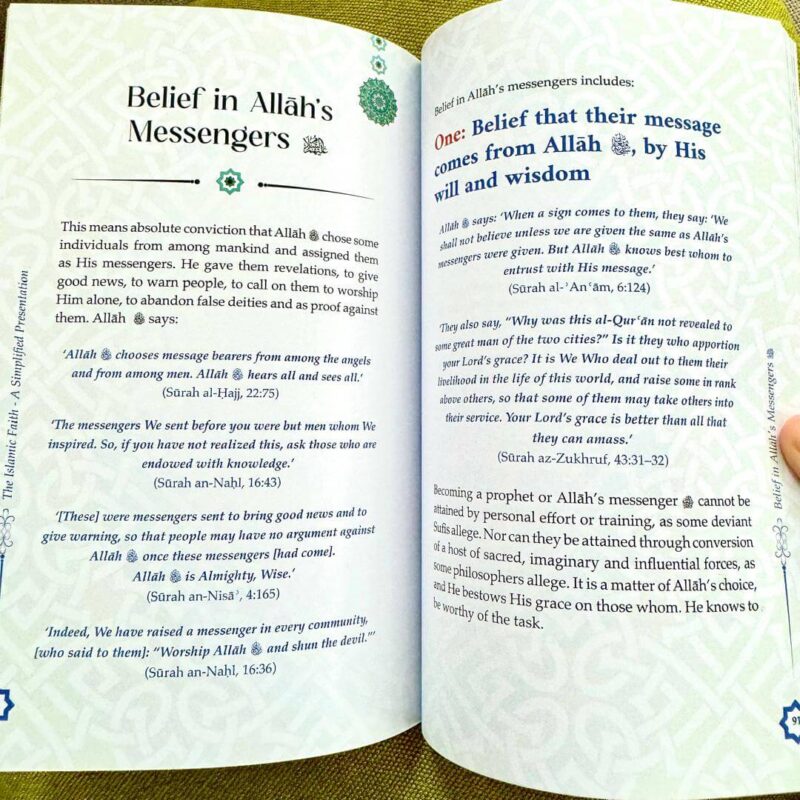 Belief in Allāh's
Messengers
This means absolute conviction that Allāh ﷻ chose some
individuals from among mankind and assigned them
as His messengers. He gave them revelations, to give
good news, to warn people, to call on them to worship
Him alone, to abandon false deities and as proof against
them. Allāh ﷻ says:
'Allāh ﷻ chooses message bearers from among the angels
and from among men. Allāh ﷻ hears all and sees all.'
(Sūrah al-Ḥajj, 22:75)
'The messengers We sent before you were but men whom We
inspired. So, if you have not realized this, ask those who are
endowed with knowledge.'
(Sūrah an-Naḥl, 16:43)
'[These] were messengers sent to bring good news and to
give warning, so that people may have no argument against
Allāh ﷻ once these messengers [had come].
Allāh ﷻ is Almighty, Wise.'
(Sūrah an-Nisāʾ, 4:165)
'Indeed, We have raised a messenger in every community,
[who said to them]: "Worship Allāh ﷻ and shun the devil."'
(Sūrah an-Naḥl, 16:36)
The Islamic Faith - A Simplified Presentation
Belief in Allāh's messengers includes:
One: Belief that their message
comes from Allāh ﷻ, by His
will and wisdom
Allāh ﷻ says: 'When a sign comes to them, they say: 'We
shall not believe unless we are given the same as Allāh's
messengers were given. But Allāh ﷻ knows best whom to
entrust with His message.'
(Sūrah al-ʾAnʿām, 6:124)
'They also say, "Why was this al-Qurʾān not revealed to
some great man of the two cities?" Is it they who apportion
your Lord's grace? It is We Who deal out to them their
livelihood in the life of this world, and raise some in rank
above others, so that some of them may take others into
their service. Your Lord's grace is better than all that
they can amass.'
(Sūrah az-Zukhruf, 43:31–32)
Becoming a prophet or Allāh's messenger cannot be
attained by personal effort or training, as some deviant
Sufis allege. Nor can they be attained through conversion
of a host of sacred, imaginary and influential forces, as
some philosophers allege. It is a matter of Allāh's choice,
and He bestows His grace on those whom. He knows to
be worthy of the task.
Belief in Allāh's Messengers
91